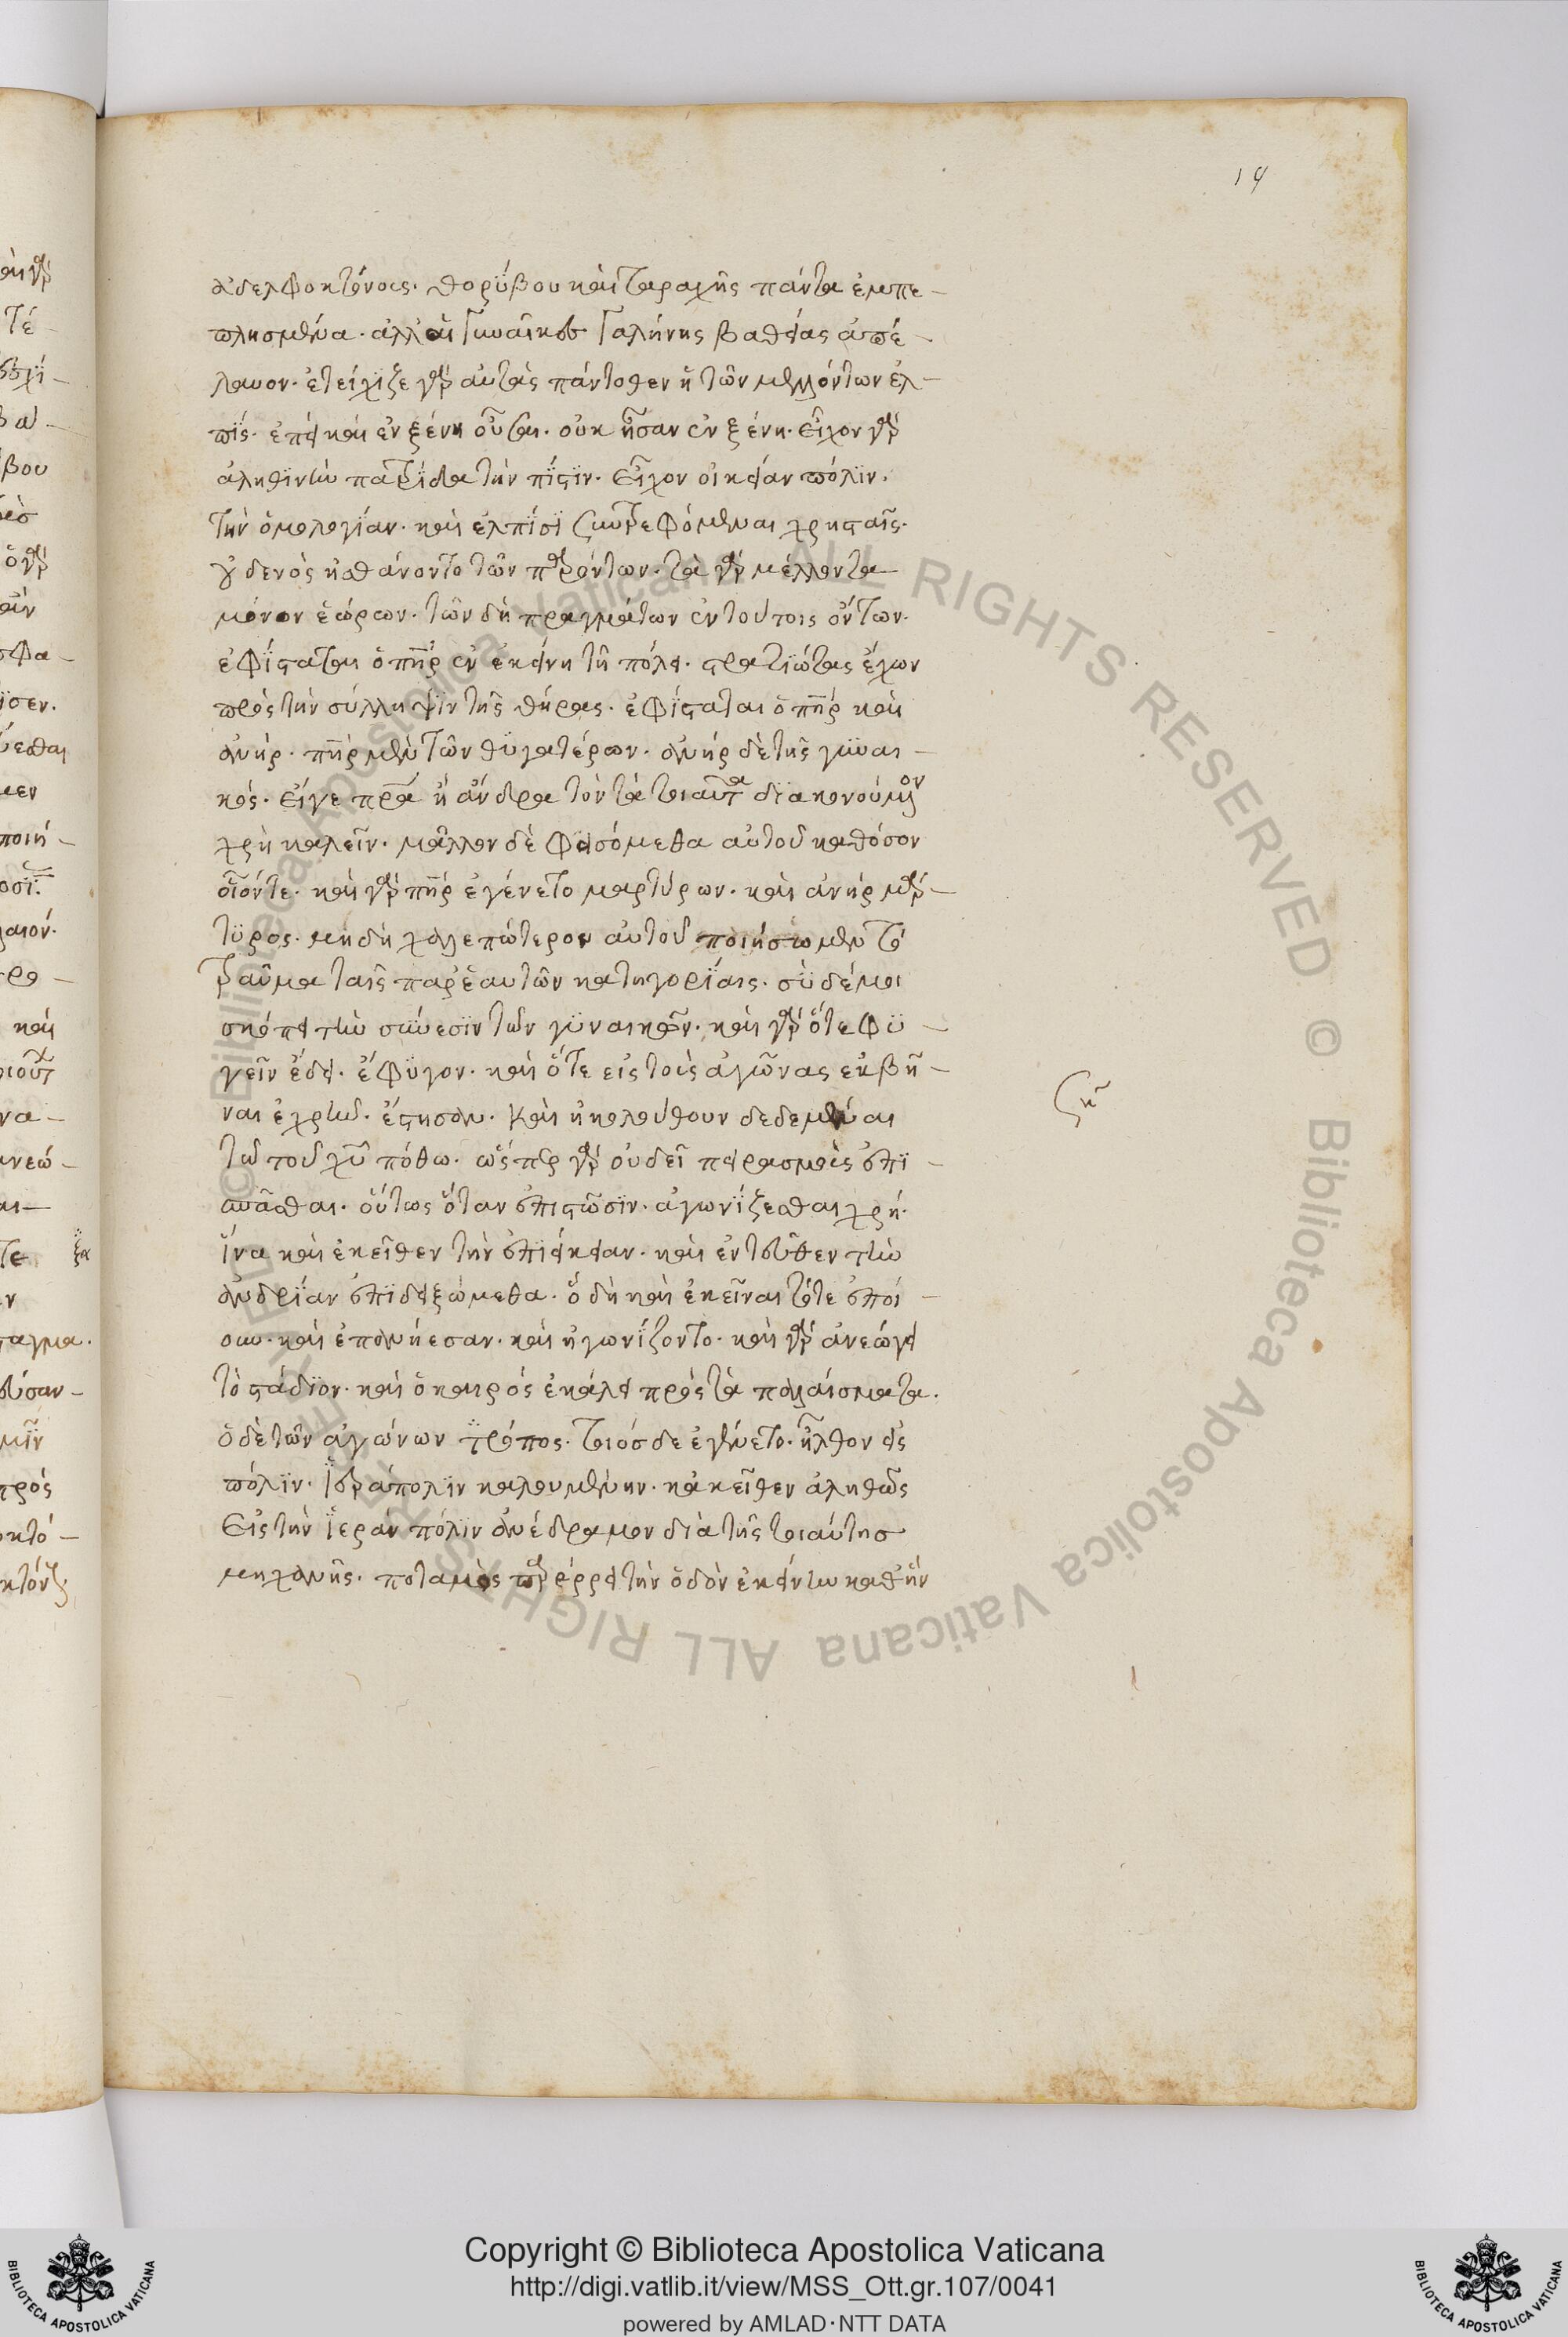 19
ἀδελφοκτόνοις. θορύβου καὶ ταραχῆς πάντα ἐμπε-
πλησμένα. ἀλλ' αἱ γυναῖκες γαλήνης βαθείας ἀπέ-
λαυον. ἐτείχιζε γὰρ αὐτὰς πάντοθεν ἡ τῶν μελλόντων ἐλ-
πίς. ἐπεὶ καὶ ἐν ξένη οὖσαι. οὐκ ἦσαν ἐν ξένη. εἶχον γὰρ
ἀληθινὴν πατρίδα τὴν πίστιν. εἶχον οἰκείαν πόλιν.
τὴν ὁμολογίαν. καὶ ἐλπίσι συντρεφόμεναι χρησταῖς.
οὐδενὸς ἠσθάνοντο τῶν παρόντων. τὰ γὰρ μέλλοντα
μόνον ἑώρων. τῶν δὴ πραγμάτων ἐν τούτοις ὄντων.
ἐφίσταται ὁ πὴρ ἐν ἐκείνη τῆ πόλει. στρατιώτας ἔχων
πρὸς τὴν σύλληψιν τῆς θήρας. ἐφίσταται ὁ πὴρ καὶ
ἀνήρ. πὴρ μὲν τῶν θυγατέρων. ἀνήρ δὲ τῆς γυναι-
κός. εἴγε πρα ἢ ἄνδρα τὸν τὰ τοιαῦτα διακονούμενον
χρὴ καλεῖν. μᾶλλον δὲ φεισόμεθα αὐτοῦ καθόσον
οἷόντε. καὶ γὰρ πὴρ ἐγένετο μαρτύρων. καὶ ἀνὴρ μάρ-
τυρος. μὴ δὴ χαλεπώτερον αὐτοῦ ποιήσωμεν τὸ
τραῦμα ταῖς παρ' ἑαυτῶν κατηγορίαις. σὺ δέ μοι
σκόπει τὴν σύνεσιν τῶν γυναικῶν. καὶ γὰρ ὅτε φυ-
γεῖν ἔδει. ἔφυγον. καὶ ὅτε εἰς τοὺς ἀγῶνας ἐκβῆ-
ναι ἐχρῆν. ἔστησαν. καὶ ἠκολούθουν δεδεμέναι
τῶ τοῦ χυ πόθω. ὥσπερ γὰρ οὐ δεῖ πειρασμοὺς ἐπι-
σπᾶσθαι. οὕτως ὅταν ἐπιστῶσιν. ἀγωνίζεσθαι χρή.
ἵνα καὶ ἐκεῖθεν τὴν ἐπιείκειαν. καὶ ἐντεῦθεν τὴν
ἀνδρίαν ἐπιδειξώμεθα. ὃ δὴ καὶ ἐκεῖναι τότε ἐποί-
ουν. καὶ ἐπανήεσαν. καὶ ἠγωνίζοντο. καὶ γὰρ ἀνεώγει
τὸ στάδιον. καὶ ὁ καιρὸς ἐκάλει πρὸς τὰ παλαίσματα.
ὁ δὲ τῶν ἀγώνων τρόπος. τοιόσδε ἐγένετο. ἦλθον εἰς
πόλιν. Ἱεράπολιν καλουμένην. κἀκεῖθεν ἀληθῶς
εἰς τὴν ἱερὰν πόλιν ἀνέδραμον διὰ τῆς τοιαύτης
μηχανῆς. ποταμὸς παρέρρει τὴν ὁδὸν ἐκείνην καθ' ἣν
Copyright © Biblioteca Apostolica Vaticana
http://digi.vatlib.it/view/MSS_Ott.gr.107/0041
powered by AMLAD·NTT DATA